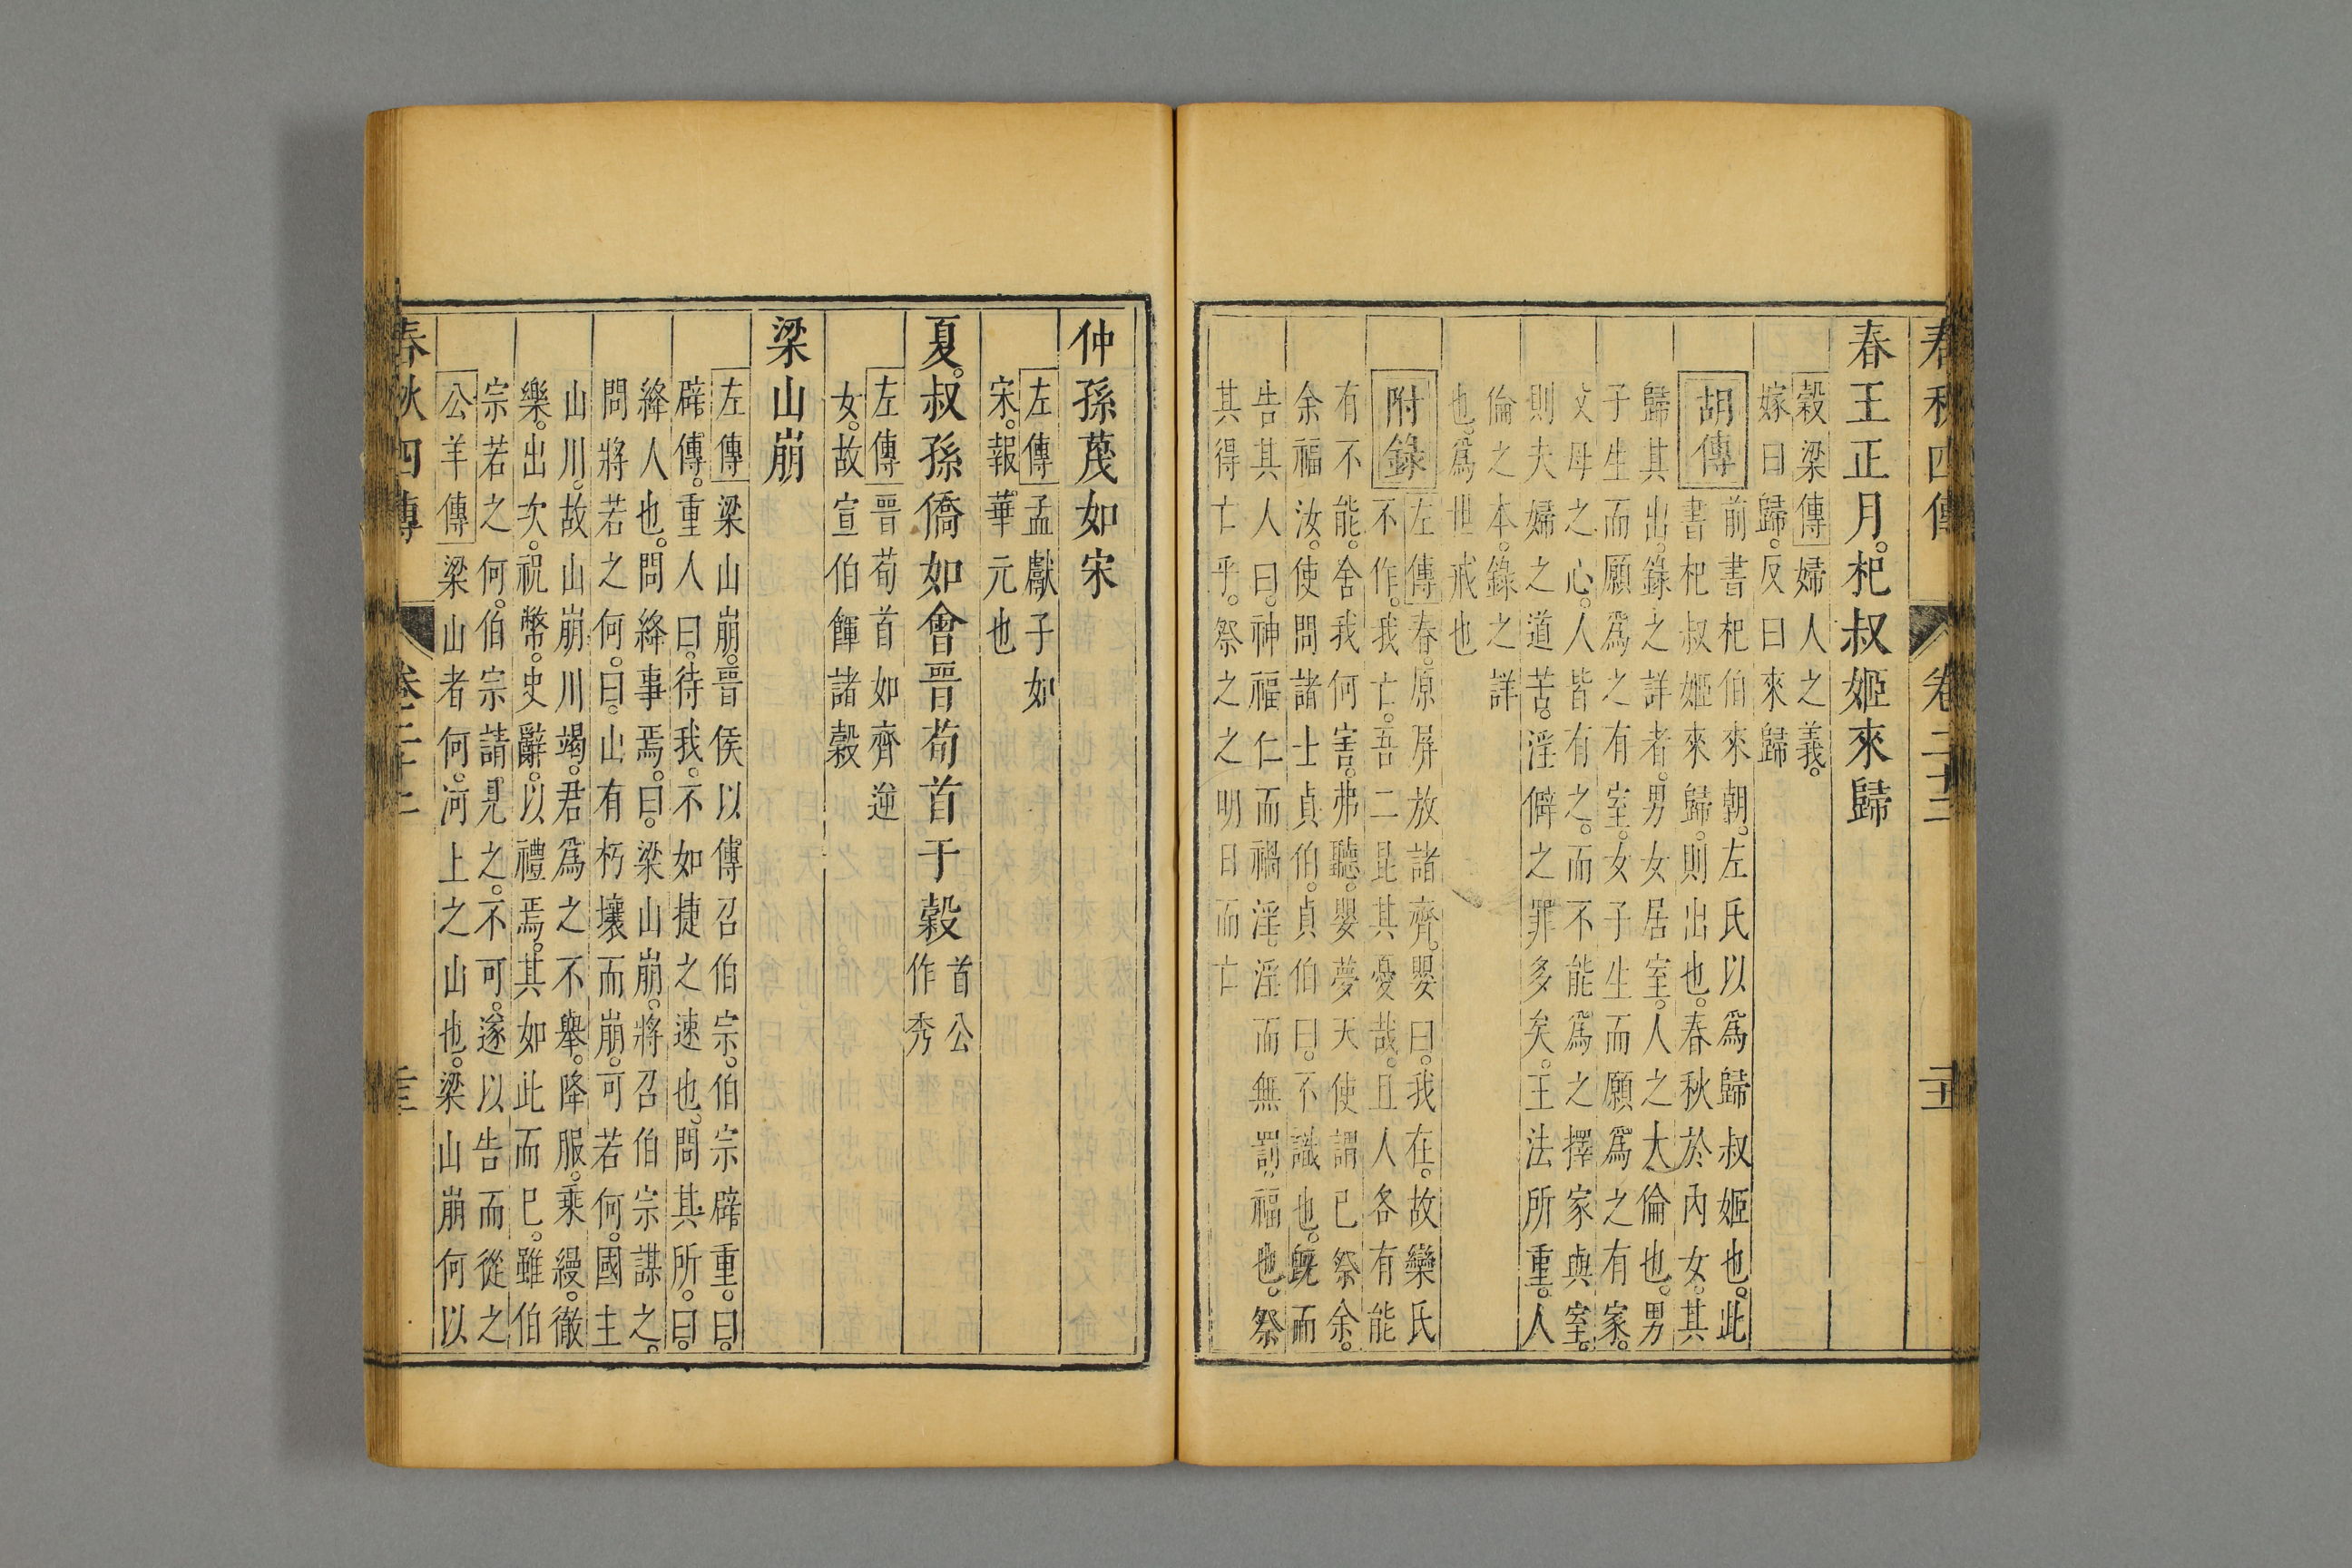 春秋四傳
卷二十二
春王正月。杞叔姬來歸
穀梁傳婦人之義。
嫁曰歸。反曰來歸
胡傳
前書杞伯來朝。左氏以爲歸叔姬也。此
書杞叔姬來歸。則出也。春秋於內女。其
歸其出。錄之詳者。男女居室。人之大倫也。男
子生而願爲之有室。女子生而願爲之有家。
父母之心。人皆有之。而不能爲之擇家與室。
則夫婦之道苦。淫僻之罪多矣。王法所重。人
倫之本。錄之詳
也。爲世戒也
附錄
左傳春。原屏放諸齊。嬰曰。我在。故欒氏
不作。我亡。吾二昆其憂哉。且人各有能
有不能。舍我何害。弗聽。嬰夢天使謂已祭余。
余福汝。使問諸士貞伯。貞伯曰。不識也。旣而
告其人曰。神福仁而禍淫。淫而無罰。福也。祭
其得亡乎。祭之之明日而亡
仲孫蔑如宋
左傳孟獻子如
宋。報華元也
夏。叔孫僑如會晉荀首于穀首公
作秀
左傳晉荀首如齊逆
女。故宣伯餫諸穀
梁山崩
左傳梁山崩。晉侯以傳召伯宗。伯宗辟重。曰。
辟傳。重人曰。待我。不如捷之速也。問其所。曰。
絳人也。問絳事焉。曰。梁山崩。將召伯宗謀之。
問將若之何。曰。山有朽壤而崩。可若何。國主
山川。故山崩川竭。君爲之不舉。降服。乘縵。徹
樂。出次。祝幣。史辭。以禮焉。其如此而巳。雖伯
宗若之何。伯宗請見之。不可。遂以告而從之
公羊傳梁山者何。河上之山也。梁山崩何以
春秋四傳